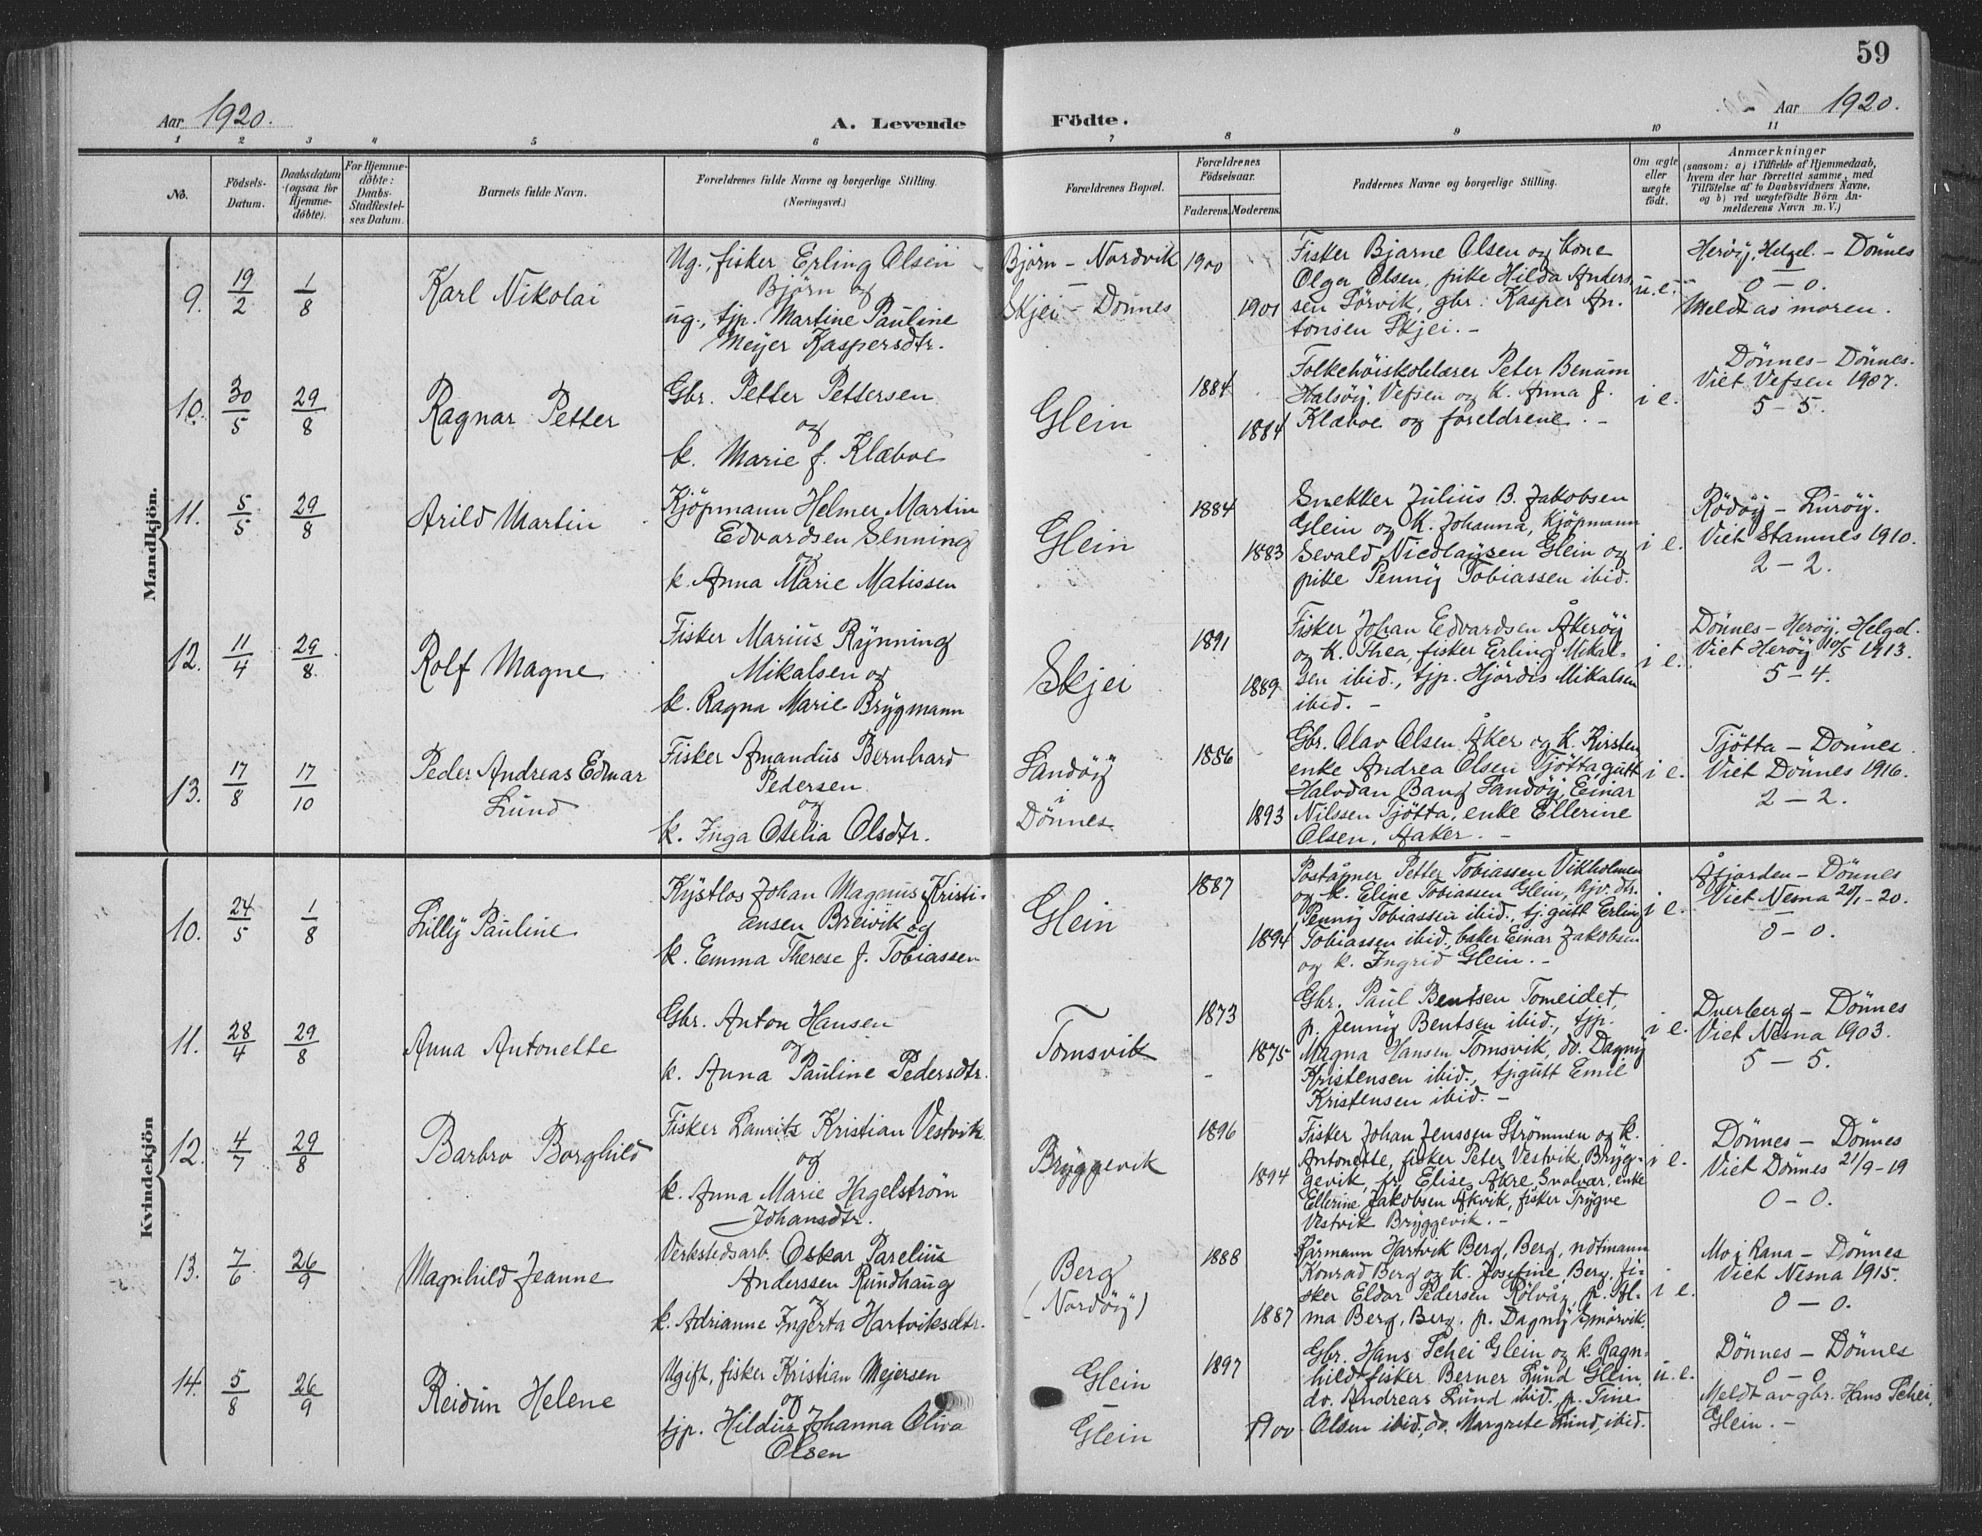 59
Aar 1920.
A. Levende
Födte.
Aar 1920.
1 2 3 4 5 6 7 8 9 10 11
No.
Födsels-
Datum.
Daabsdatum
(ogsaa for
Hjemme-
döbte).
For Hjemme-
döbte:
Daabs-
Stadfæstel-
ses Datum.
Barnets fulde Navn.
Forældrenes fulde Navne og borgerlige Stilling.
(Næringsvei.)
Forældrenes Bopæl.
Forældrenes
Födselsaar.
Faderens. Moderens.
Faddernes Navne og borgerlige Stilling.
Om ægte
eller
uægte
födt.
Anmærkninger
(saasom: a) i Tilfælde af Hjemmedaab,
hvem der har forrettet samme, med
Tilföielse af to Daabsvidners Navne,
og b) ved uægtefödte Börn An-
melderens Navn m. V.)
Mandkjön.
9. 19/2 1/8
Karl Nikolai
Ug., fisker Erling Olsen
Björn og
ug., tjp. Martine Pauline
Meyer Kaspersdtr.
Björn - Nordvik
Skjei - Dönnes
1900
1901
Fisker Bjarne Olsen og kone
Olga Olsen, pike Hilda Anders
sen Sörvik, gbr. Kasper An-
tonsen Skjei. -
u. e.
Heröy, Helgel. - Dönnes
0 - 0.
Meldt av moren.
10. 30/5 29/8
Ragnar Petter
Gbr. Petter Pettersen
og
k. Marie f. Klæboe
Glein
1884
1884
Folkehöiskolelærer Peter Benum
Halsöy, Vefsen og k. Anna f.
Klæboe og foreldrene. -
i e.
Dönnes - Dönnes.
Viet Vefsen 1907.
5 - 5.
11. 5/5 29/8
Arild Martin
Kjöpmann Helmer Martin
Edvardsen Senning
og
k. Anna Marie Matissen
Glein
1884
1883
Snekker Julius B. Jakobsen
Glein og k. Johanna, kjöpmann
Sevald Nicolaysen Glein og
pike Penny Tobiassen ibid.
i e.
Rödöy - Luröy.
Viet Stamnes 1910.
2 - 2.
12. 11/4 29/8
Rolf Magne
Fisker Marius Rynning
Mikalsen og
k. Ragna Marie Brygmann
Skjei
1891
1889
Fisker Johan Edvardsen Åkeröy
og k. Thea, fisker Erling Mikal-
sen ibid., tjp. Hjördis Mikalsen
ibid. -
i e.
Dönnes - Heröy, Helgel.
Viet Heröy 10/5 1913.
5 - 4.
13. 17/8 17/10
Peder Andreas Edmar
Lund
Fisker Amandus Bernhard
Pedersen
og
k. Inga Otelia Olsdtr.
Sandöy
i
Dönnes
1886
1893
Gbr. Olav Olsen Åker og k. Kirsten
enke Andrea Olsen Tjötta, gutt
Halvdan Bang Sandöy, Einar
Nilssen Tjötta, enke Ellerine
Olsen, Aaker. -
i e.
Tjötta - Dönnes.
Viet Dönnes 1916.
2 - 2.
Kvindekjön
10. 24/5 1/8
Lilly Pauline
Kystlos Johan Magnus Kristi-
ansen Breivik og
k. Emma Therese f. Tobiassen
Glein
1887
1894
Poståpner Petter Tobiassen Vikholmen
og k. Eline Tobiassen Glein, hjv. dtr.
Penny Tobiassen ibid., tj.gutt Erling
Tobiassen ibid., baker Einar Jakobsen
og k. Ingrid Glein. -
i e.
Åfjorden - Dönnes
Viet Nesna 20/1-20.
0 - 0.
11. 28/4 29/8
Anna Antonette
Gbr. Anton Hansen
og
k. Anna Pauline Pedersdtr.
Tomsvik
1873
1875
Gbr. Paul Bentsen Tomeidet,
p. Jenny Bentsen ibid., tjp.
Magna Hansen Tomsvik, do. Dagny
Kristensen ibid., tj.gutt Emil
Kristensen ibid. -
i e.
Dverberg - Dönnes
Viet Nesna 1903.
5 - 5.
12. 4/7 29/8
Barbro Borghild
Fisker Lauritz Kristian Vestvik
og
k. Anna Marie Hagelström
Johansdtr.
Bryggevik
1896
1894
Fisker Johan Jenssen Strömmen og k.
Antonette, fisker Peter Vestvik, Bryg-
gevik, fr. Elise Åkre, Svolvær, enke
Ellerine Jakobsen Åkvik, fisker Trygve
Vestvik Bryggevik. -
i e.
Dönnes - Dönnes
Viet Dönnes 21/9-19
0 - 0.
13. 7/6 26/9
Magnhild Jeanne
Verkstedsarb. Oskar Parelius
Anderssen Rundhaug
og
k. Adrianne Ingerta Hartviksdtr.
Berg
(Nordöy)
1888
1887
Kårmann Hartvik Berg, Berg, notmann
Konrad Berg og k. Josefine, Berg, fi-
sker Eldor Pedersen Rölvåg, p. Al-
ma Berg, Berg. p. Dagny Smörvik.
i e.
Mo i Rana - Dönnes
Viet Nesna 1915.
0 - 0.
14. 5/8 26/9
Reidun Helene
Ugift, fisker Kristian Mejersen
og
tjp. Hildur Johanna Oliva
Olsen
Glein
Glein
1897
1900
Gbr. Hans Schei Glein og k. Ragn-
hild, fisker Berner Lund Glein,
do. Andreas Lund ibid. p. Tine
Olsen ibid., do. Margrete Lund, ibid.
u. e.
Dönnes - Dönnes
0 - 0
Meldt av gbr. Hans Schei,
Glein. -